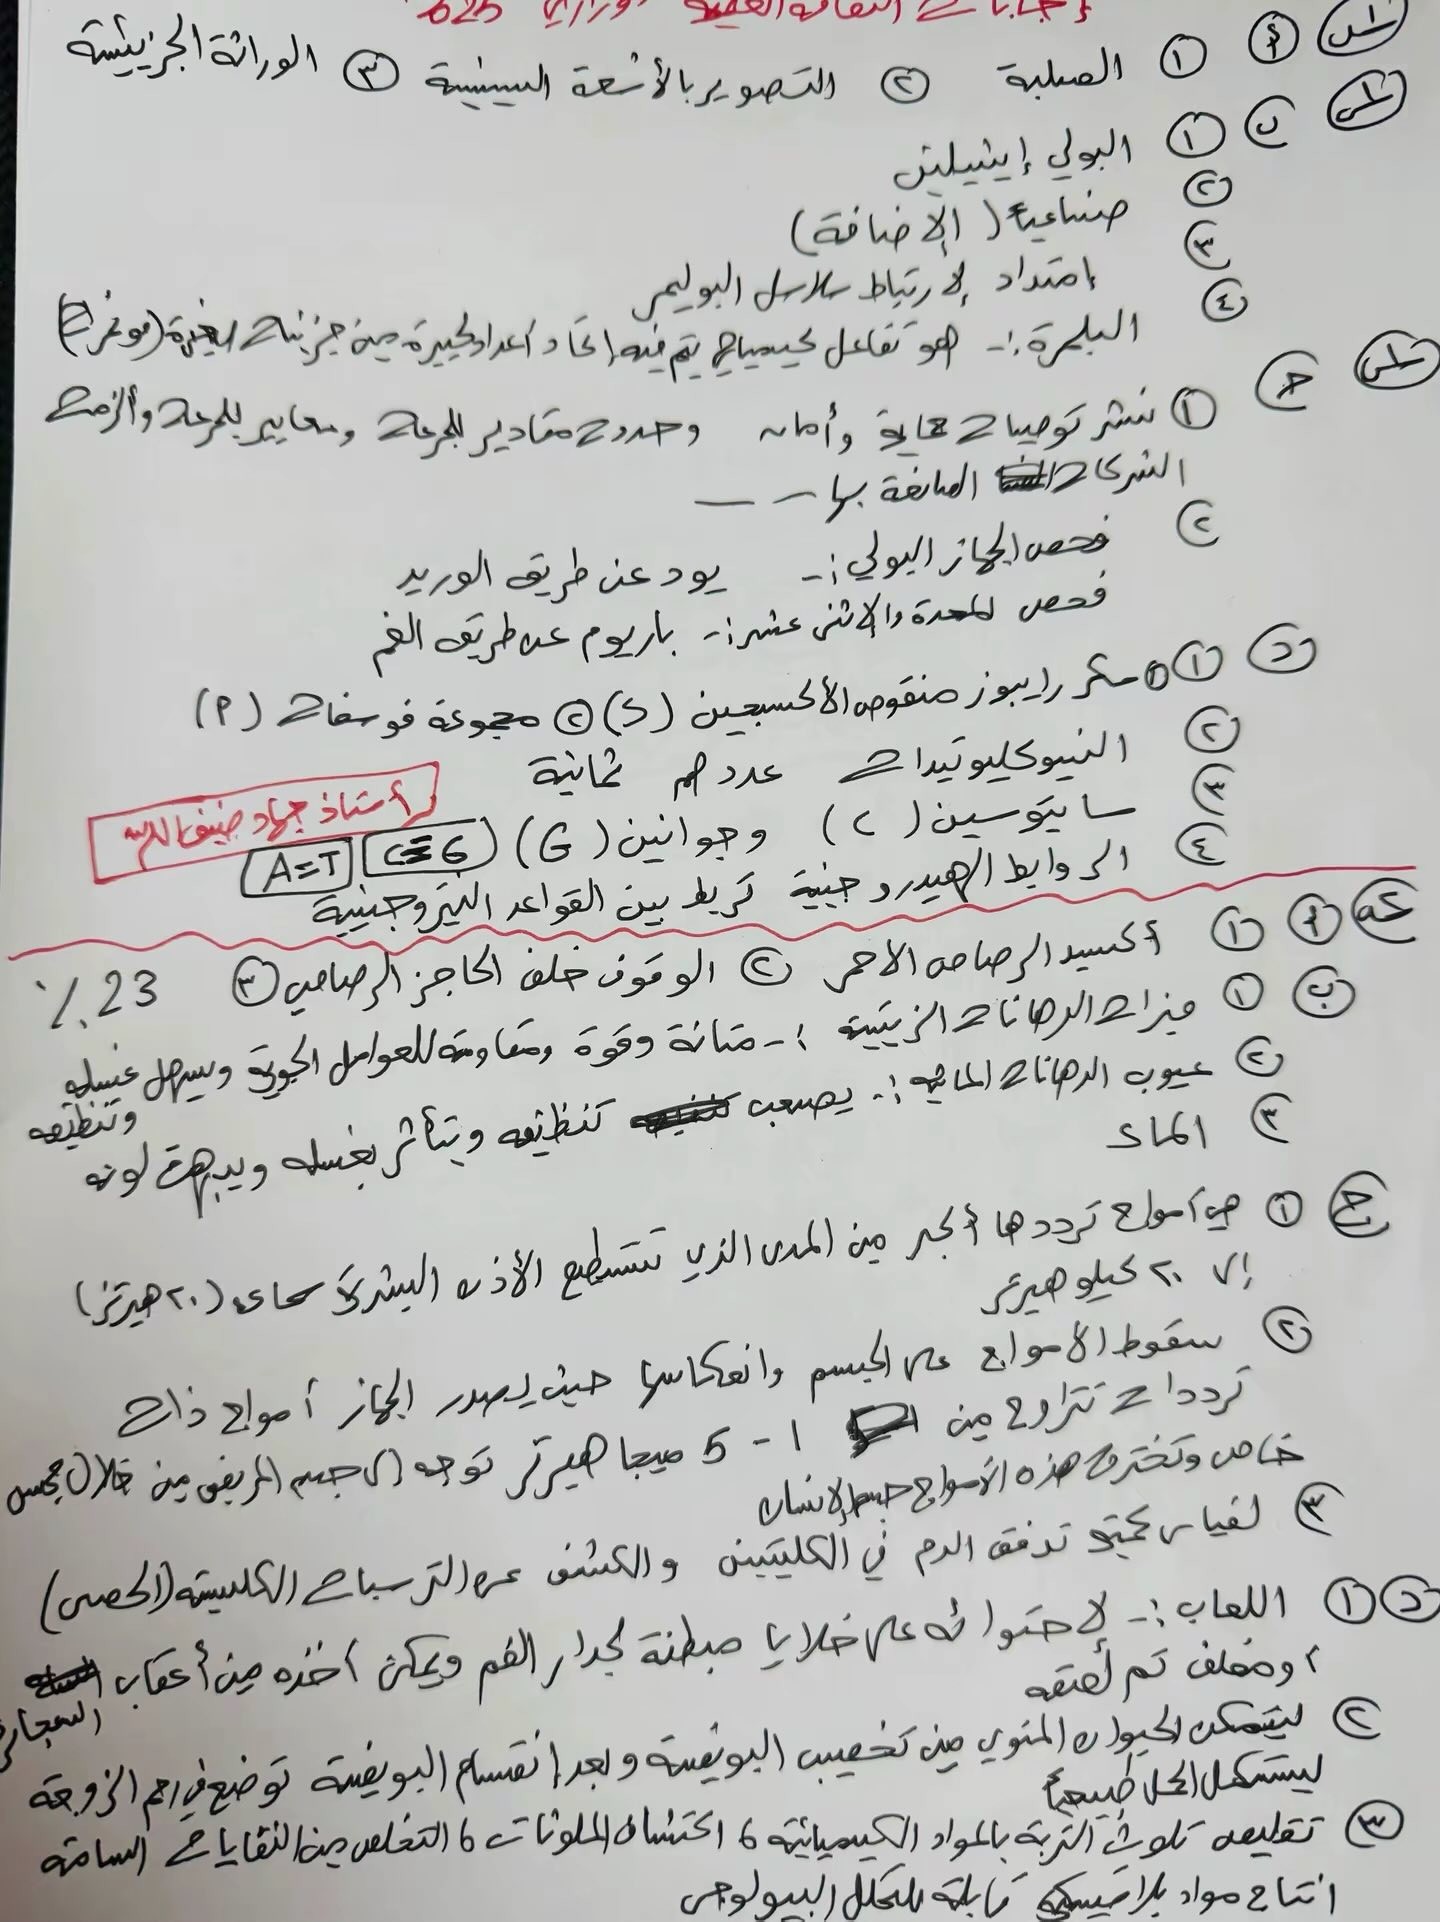 إجابات الثقافة العلمية وزاري 2025
س١ أ ١ الصلبة ٢ التصوير بالأشعة السينية ٣ الوراثة الجزيئية
س١ ب ١ البولي إيثيلين
٢ صناعية (الإضافة)
٣ إمتداد لارتباط سلاسل البوليمر
٤ البلمرة :- هو تفاعل كيميائي يتم فيه إتحاد أعداد كبيرة من جزيئات صغيرة (مونمرات)
س١ ج ١ نشر توصيات حماية وأمان وحددت مقادير للجرعات ومعايير للجرعات وألزمت
الشركات الصانعة بها ــ ــ
٢ فحص الجهاز البولي :- يود عن طريق الوريد
فحص المعدة والاثنى عشر :- باريوم عن طريق الفم
د ١ ١ سكر رايبوز منقوص الأكسجين (S) ٢ مجموعة فوسفات (P)
٢ النيوكليوتيدات عددهم ثمانية
٣ سايتوسين (C) وجوانين (G) C≡G A=T
أستاذ جهاد ضيف الله
٤ الروابط الهيدروجينية تربط بين القواعد النيتروجينية
أ ١ أكسيد الرصاص الأحمر ٢ الوقوف خلف الحاجز الرصاصي ٣ 23 ٪
ب ١ ميزات الدهانات الزيتية :- متانة وقوة ومقاومة للعوامل الجوية ويسهل غسله
وتنظيفه
٢ عيوب الدهانات المائية :- يصعب تنظيفه ويتأثر بغسله ويبهت لونه
٣ الماء
ج ١ هي أمواج ترددها أكبر من المدى الذي تستطيع الأذن البشرية سماعه (٢٠ هيرتز)
إلى ٢٠ كيلو هيرتز
٢ سقوط الأمواج على الجسم وانعكاسها حيث يصدر الجهاز أمواج ذات
ترددات تتراوح من 1 - 5 ميجا هيرتز توجه إلى جسم المريض من خلال مجس
خاص وتخترق هذه الأمواج جسم الإنسان
٣ لقياس كمية تدفق الدم في الكليتين والكشف عن الترسبات الكلسية (الحصى)
د ١ اللعاب :- لاحتوائه على خلايا مبطنة لجدار الفم ويمكن أخذه من أعقاب السجائر
أو مغلف تم لعقه
٢ ليتمكن الحيوان المنوي من تخصيب البويضة وبعد إنقسام البويضة توضع في رحم الزوجة
ليستكمل الحمل طبيعياً
٣ تقليص تلوث التربة بالمواد الكيميائية ، اكتشاف الملوثات ، التخلص من النفايات السامة
انتاج مواد بلاستيكية قابلة للتحلل البيولوجي